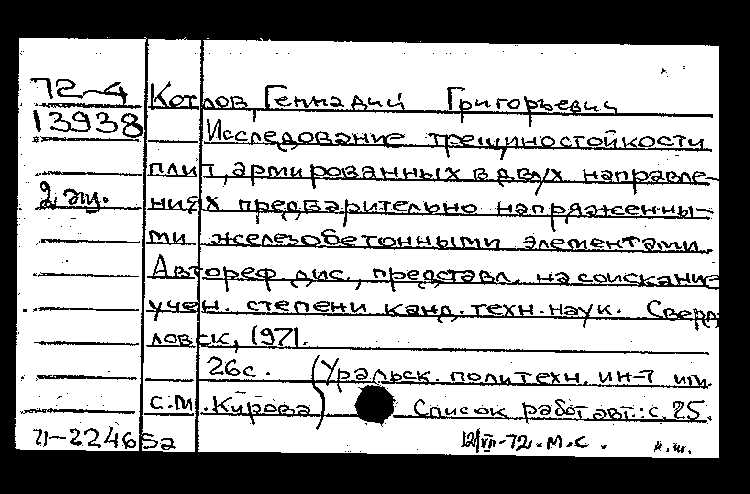 72-4 Котлов, Геннадий Григорьевич
13938 Исследование трещиностойкости
плит, армированных в двух направле-
2 эк. ниях предварительно напряженны-
ми железобетонными элементами.
Автореф. дис., представл. на соискание
учен. степени канд. техн. наук. Сверд-
ловск, 1971.
26с. (Уральск. политехн. ин-т им.
С.М. Кирова) Список работ авт.: с. 25.
71-22465а 12/VII-72. М.С. к.ш.